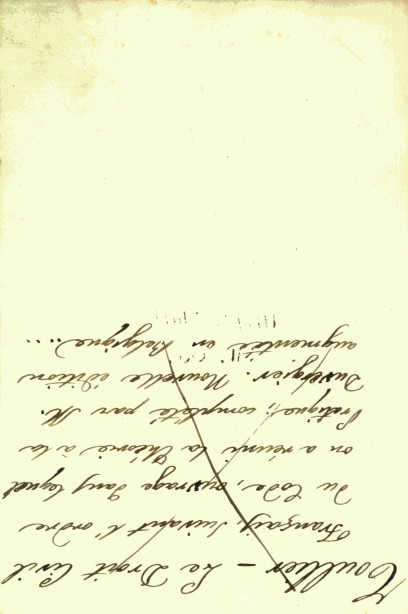 Toullier – Le Droit Civil
Français suivant l'ordre
du Code, ouvrage dans lequel
on a réuni la théorie à la
Pratique; complété par M.
Duvergier. Nouvelle édition
augmentée en Belgique...